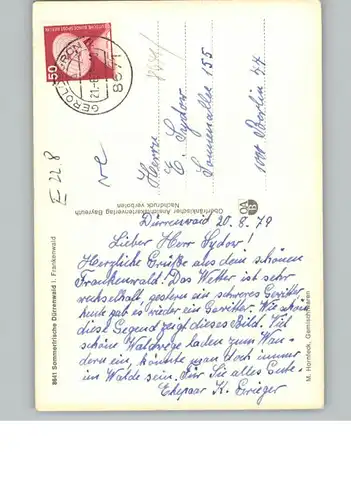 50
DEUTSCHE BUNDESPOST BERLIN
8671
21.-8
Herrn
E Sydow
Sonnenallee 155
1000 Berlin 44
E 22.8
Oberfränkischer Ansichtkartenverlag Bayreuth
Nachdruck verboten
Dürrenwaid 20.8.79
Lieber Herr Sydow!
Herzliche Grüße aus dem schönen
Frankenwald! Das Wetter ist sehr
wechselhaft, gestern ein schweres Gewitter
heute gab es wieder ein Gewitter. Wie schön
diese Gegend zeigt dieses Bild. Viel
schöne Waldwege laden zum Wan-
dern ein, könnte man doch immer
im Walde sein. Für Sie alles Gute
Ehepaar K.
8641 Sommerfrische Dürrenwaid i. Frankenwald
M. Hornfeck, Gemischtwaren